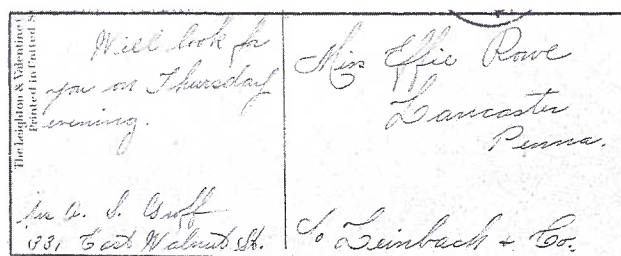 The Leighton & Valentine
Printed in United S
Will look for
you on Thursday
evening.
A. S. Groff
331 East Walnut St.
Miss Effie Rowe
Lancaster
Penna.
c/o Leinbach & Co.